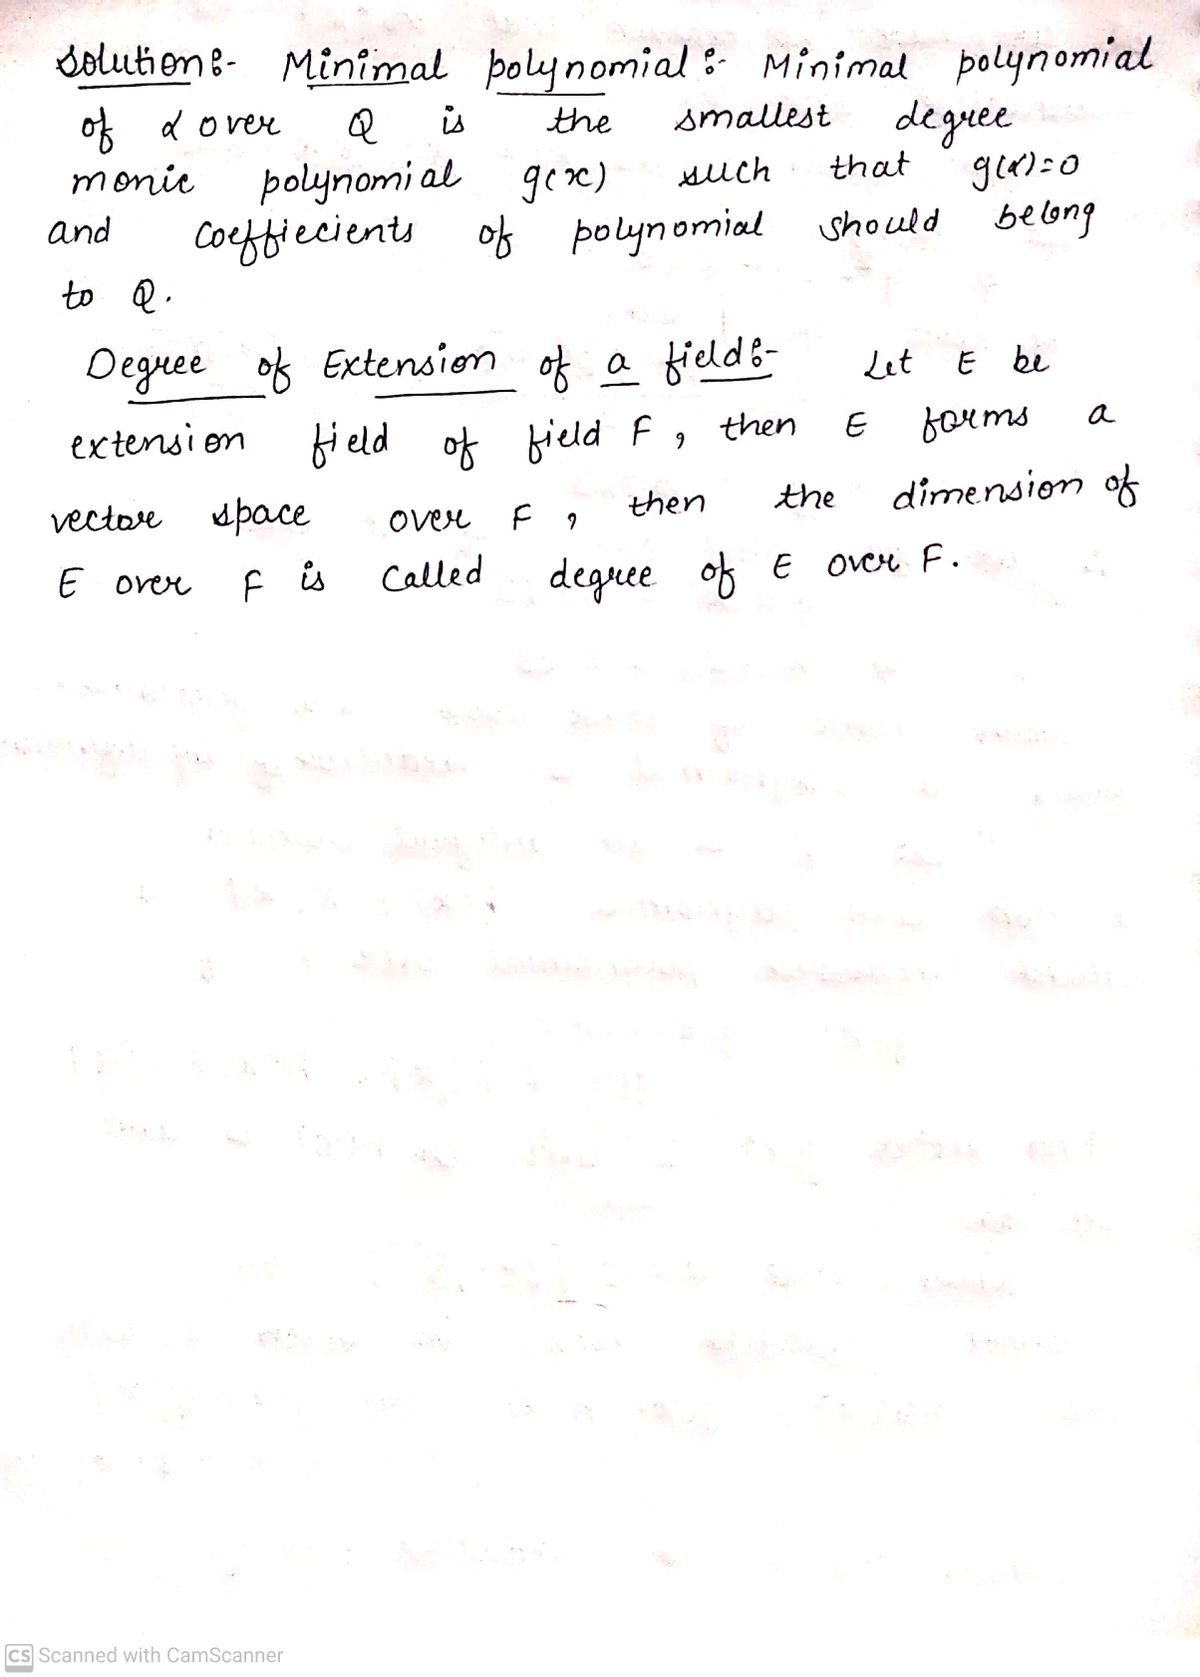 Solution:- Minimal polynomial :- Minimal polynomial
of α over Q is the smallest degree
monic polynomial g(x) such that g(α)=0
and coeffiecients of polynomial should belong
to Q.
Degree of Extension of a field:- Let E be
extension field of field F, then E forms a
vector space over F, then the dimension of
E over F is called degree of E over F.
CS Scanned with CamScanner